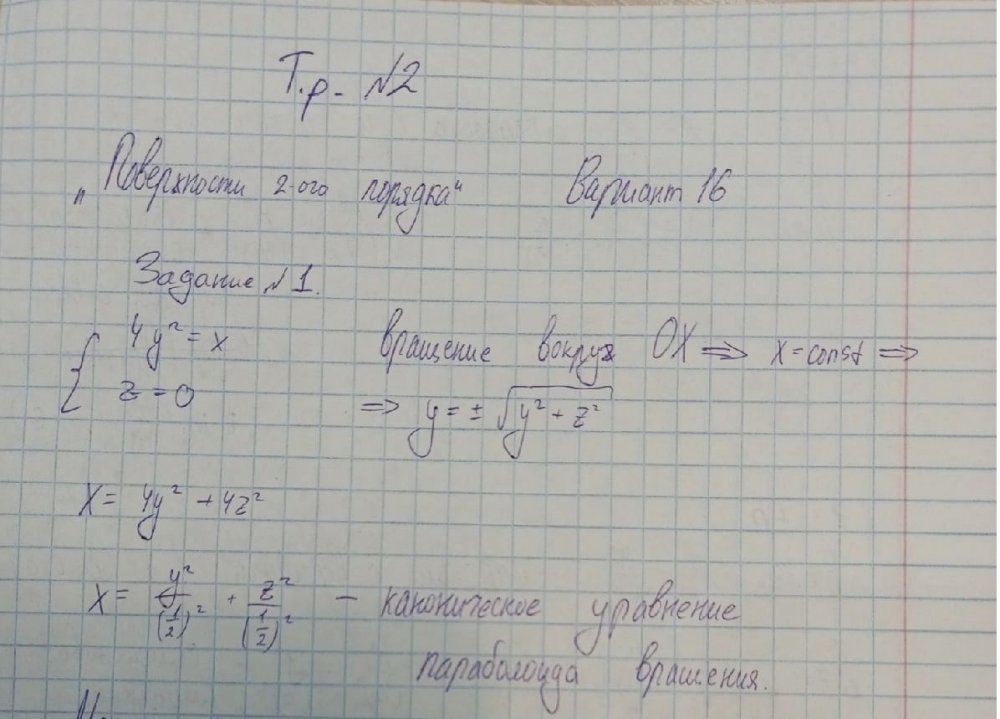 Т.р. №2
"Поверхности 2-ого порядка" Вариант 16
Задание №1.
{ 4y² = x
z = 0
вращение вокруг OX => x = const =>
=> y = ± √(y² + z²)
X = 4y² + 4z²
X = y²/(1/2)² + z²/(1/2)² - каноническое уравнение
параболоида вращения.